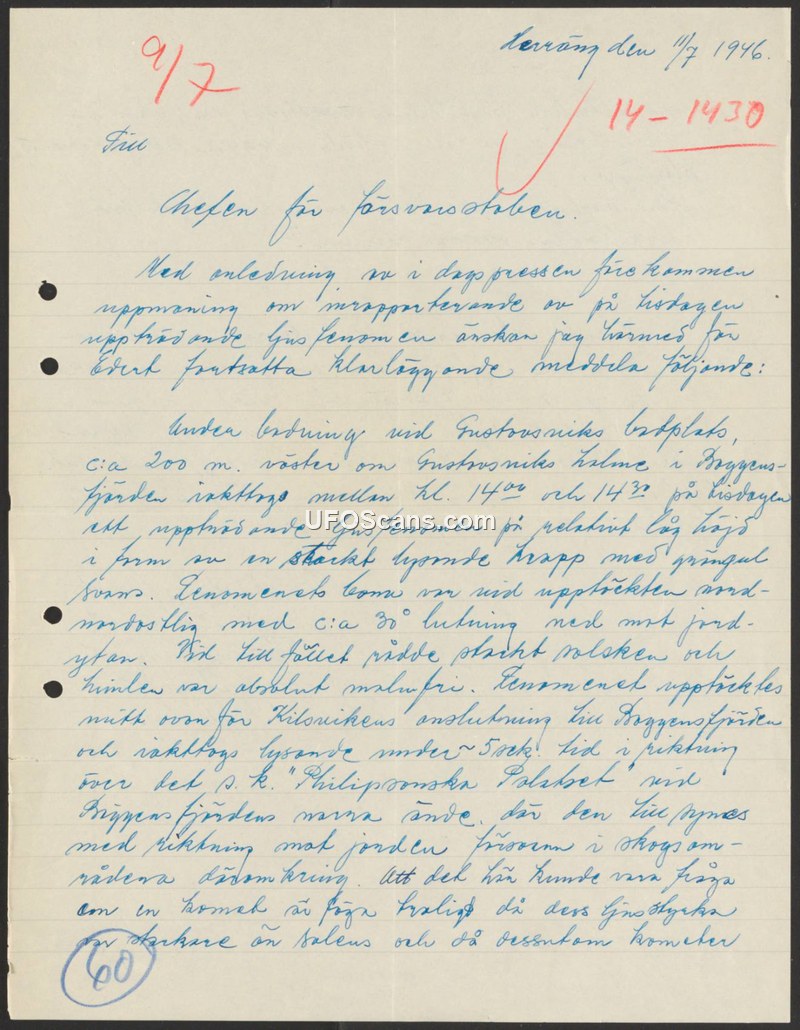 Herräng den 11/7 1946.
9/7
14 – 1430
Till
Chefen för försvarsstaben.
Med anledning av i dagspressen förekommen
uppmaning om inrapporterande av på tisdagen
uppträdande ljusfenomen önskar jag härmed för
Edert fortsatta klarläggande meddela följande:
Under badning vid Gustavsviks badplats,
c:a 200 m. väster om Gustavsviks holme i Baggens-
fjärden iakttogs mellan kl. 14 00 och 14 30 på tisdagen
ett uppträdande ljusfenomen på relativt låg höjd
i form av en starkt lysande kropp med gröngul
svans. Fenomenets bana var vid upptäckten nord-
nordostlig med c:a 30° lutning ned mot jord-
ytan. Vid tillfället rådde starkt solsken och
himlen var absolut molnfri. Fenomenet upptäcktes
mitt ovanför Kilsvikens anslutning till Baggensfjärden
och iakttogs lysande under ~ 5 sek. tid i riktning
över det s.k. "Philipsonska Palatset" vid
Baggensfjärdens norra ände, där den till synes
med riktning mot jorden försvann i skogsom-
rådena däromkring. Att det här kunde vara fråga
om en komet är föga troligt då dess ljusstyrka
var starkare än solens och då dessutom kometer
60
UFOScans.com